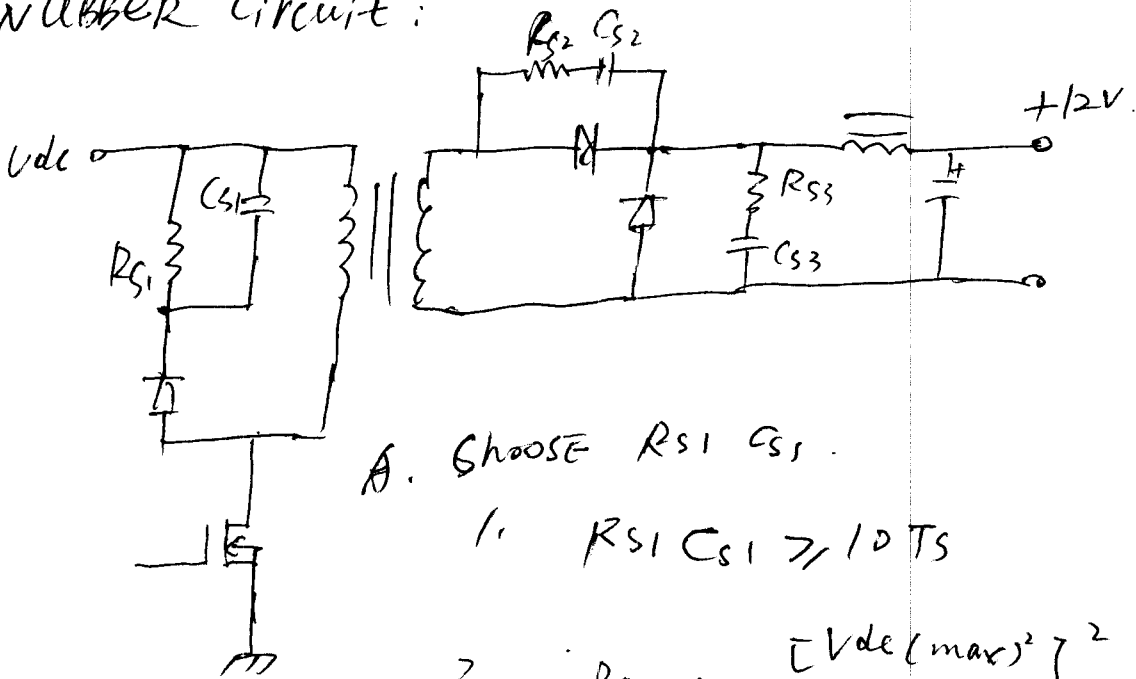 NUBBER Circuit :
Rs2 Cs2
+12V.
Vdc
Cs1
Rs1
Rs3
Cs3
A. Choose Rs1 Cs1.
1. Rs1 Cs1 ≥ 10 Ts
[Vdc (max)²]²